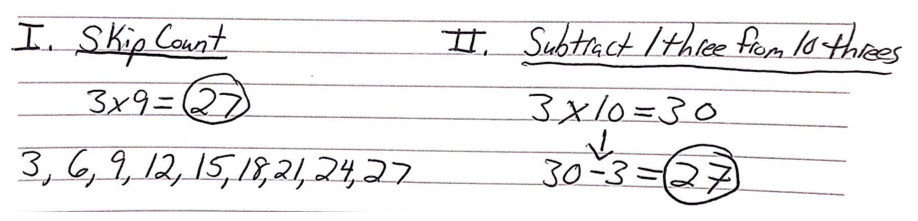 I. Skip Count
3x9=27
3, 6, 9, 12, 15, 18, 21, 24, 27
II. Subtract 1 three from 10 threes
3x10=30
30-3=27